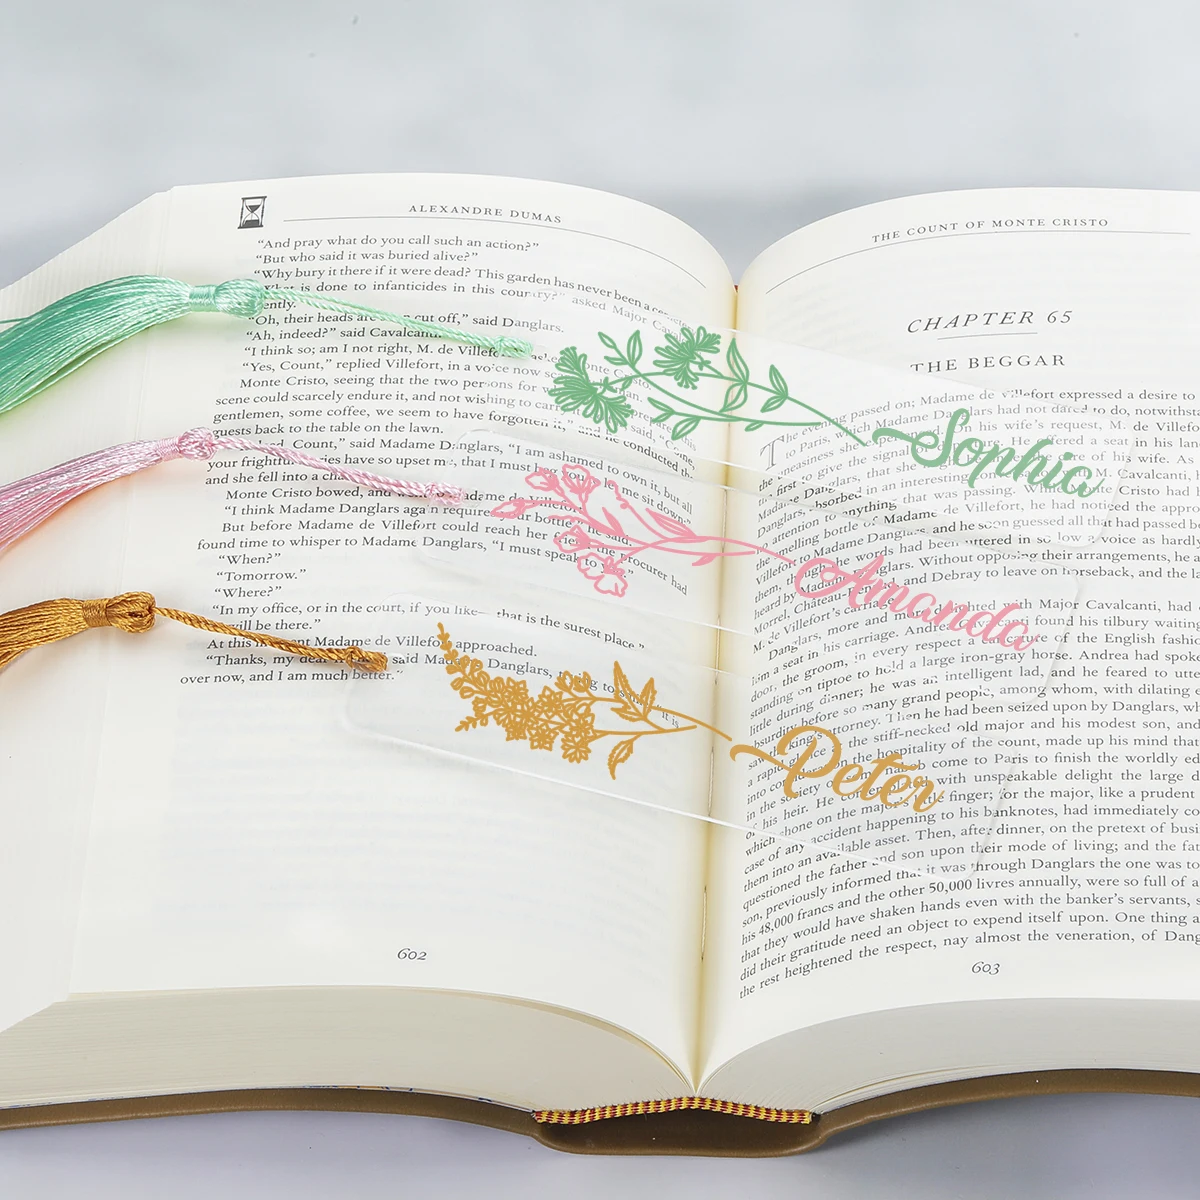 ALEXANDRE DUMAS
“And pray what do you call such an action?”
“But who said it was buried alive?”
“Why bury it there if it were dead? This garden has never been a
What is done to infanticides in this country?” asked Major
“Oh, their heads are cut off,” said Danglars.
“Ah, indeed?” said Cavalcanti.
“I think so; am I not right, M. de Villefort?”
“Yes, Count,” replied Villefort, in a voice now
Monte Cristo, seeing that the two persons for
scene could scarcely endure it, and not wishing to carry
gentlemen, some coffee, we seem to have forgotten it,” and he conducted the
guests back to the table on the lawn.
Count,” said Madame Danglars, “I am ashamed to own it, but all
your frightful stories have so upset me, that I must beg you to let me sit down,”
and she fell into a
Monte Cristo bowed, and went to Madame de Villefort.
“I think Madame Danglars again requires your bottle,” he said.
But before Madame de Villefort could reach her friend, the procurer had
found time to whisper to Madame Danglars, “I must speak to you.”
“When?”
“Tomorrow.”
“Where?”
“In my office, or in the court, if you like— that is the surest place.”
will be there.”
At this moment Madame de Villefort approached.
“Thanks, my dear said Madame Danglars, trying to “it is
over now, and I am much better.”
602
THE COUNT OF MONTE CRISTO
CHAPTER 65
THE BEGGAR
The evening passed on; Madame de Villefort expressed a desire to
to Paris, which Madame Danglars had not dared to do, notwiths
uneasiness she On his wife’s request, M. de Villefo
first to give the signal He offered a seat in his lan
Madame Danglars, that she might be under the care of his wife. As
absorbed in an interesting M. Cavalcanti, h
attention to anything that was passing. While Monte Cristo had
smelling bottle of Madame de Villefort, he had noticed the appro
Villefort to Madame Danglars, and he soon guessed all that had passed b
them, though the words had been uttered in so low a voice as hardly
heard by Madame Danglars. Without opposing their arrangements, he a
Morrel, Château-Renaud, and Debray to leave on horseback, and the la
M. de Villefort’s carriage. Danglars, more and more delighted with Major Cavalcanti, had
a seat in his carriage. Andrea Cavalcanti found his tilbury waiting
door, the groom, in every respect a caricature of the English fashion
standing on tiptoe to hold a large iron-gray horse. Andrea had spoke
little during dinner; he was an intelligent lad, and he feared to utte
absurdity before so many grand people, among whom, with dilating e
saw the king’s attorney. Then he had been seized upon by Danglars, wh
a rapid glance at the stiff-necked old major and his modest son, and
into consideration the hospitality of the count, made up his mind that
in the society of some nabob come to Paris to finish the worldly ed
of his heir. He contemplated with unspeakable delight the large d
which shone on the major’s little finger; for the major, like a prudent
case of any accident happening to his banknotes, had immediately co
them into an available asset. Then, after dinner, on the pretext of busi
questioned the father and son upon their mode of living; and the fat
son, previously informed that it was through Danglars the one was to
his 48,000 francs and the other 50,000 livres annually, were so full of a
that they would have shaken hands even with the banker’s servants, s
did their gratitude need an object to expend itself upon. One thing a
the rest heightened the respect, nay almost the veneration, of Dang
603
Sophia
Amanda
Peter